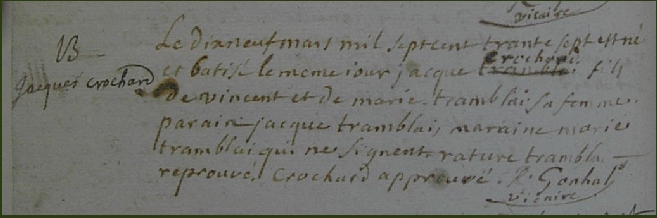 vicaire
Le dixneuf mars mil septcent trante sept est né
VB
Jacques crochard
crochard
et batisé le meme iour jacque trambla fils
de vincent et de marie tramblai sa femme
parain jacque tramblai, maraine marie
tramblai qui ne signent, rature trambla
reprouvé, Crochard approuvé. Gonhal
vicaire